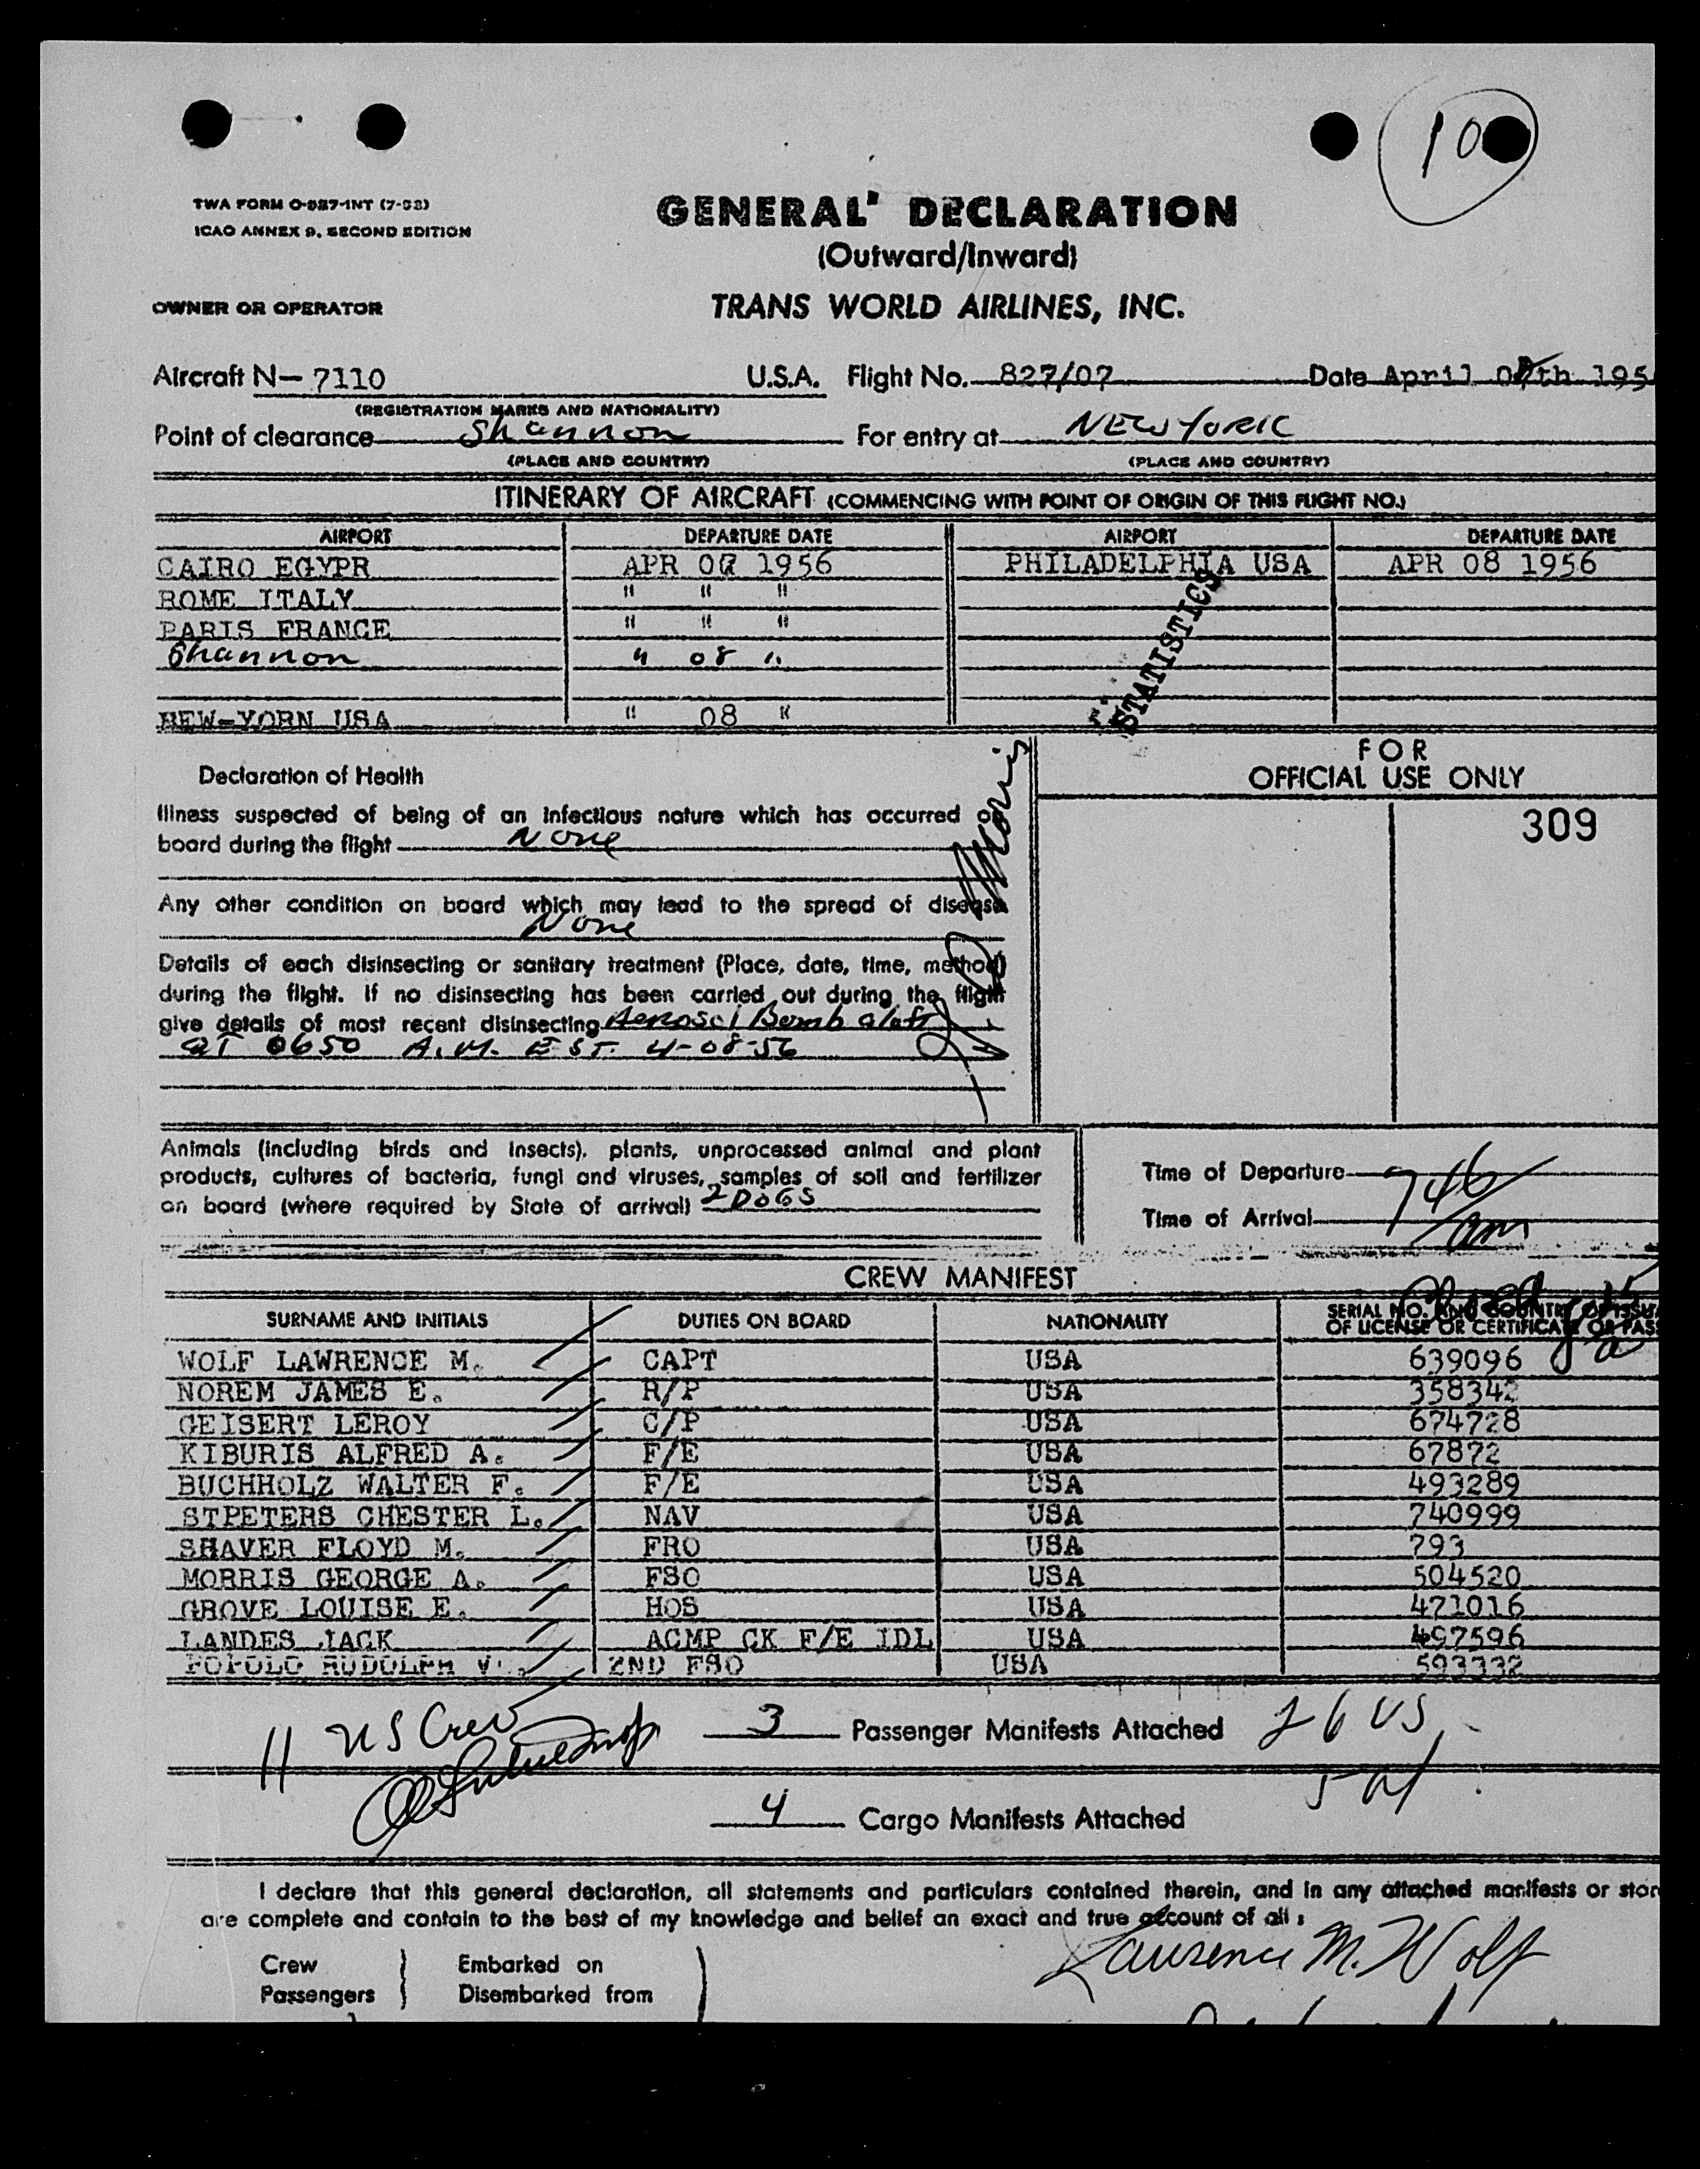 10
TWA FORM O-927-INT (7-53)
ICAO ANNEX 9, SECOND EDITION
GENERAL DECLARATION
(Outward/Inward)
OWNER OR OPERATOR
TRANS WORLD AIRLINES, INC.
Aircraft N- 7110 U.S.A. Flight No. 827/07 Date April th 195
(REGISTRATION MARKS AND NATIONALITY)
Point of clearance Shannon For entry at NEW YORK
(PLACE AND COUNTRY) (PLACE AND COUNTRY)
ITINERARY OF AIRCRAFT (COMMENCING WITH POINT OF ORIGIN OF THIS FLIGHT NO.)
AIRPORT DEPARTURE DATE AIRPORT DEPARTURE DATE
CAIRO EGYPR APR 07 1956 PHILADELPHIA USA APR 08 1956
ROME ITALY " " "
PARIS FRANCE " " "
Shannon " 08 "
NEW-YORN USA " 08 "
STATISTICS
Declaration of Health
FOR
OFFICIAL USE ONLY
309
Illness suspected of being of an infectious nature which has occurred on
board during the flight None
Any other condition on board which may lead to the spread of disease
None
Details of each disinsecting or sanitary treatment (Place, date, time, method)
during the flight. If no disinsecting has been carried out during the flight
give details of most recent disinsecting Aerosol Bomb aloft
at 0650 A.M. EST. 4-08-56
Animals (including birds and insects), plants, unprocessed animal and plant
products, cultures of bacteria, fungi and viruses, samples of soil and fertilizer
on board (where required by State of arrival) 2 DOGS
Time of Departure
Time of Arrival 746 am
CREW MANIFEST
SURNAME AND INITIALS DUTIES ON BOARD NATIONALITY SERIAL NO. AND COUNTRY OF ISSU
OF LICENSE OR CERTIFICATE OR PAS
WOLF LAWRENCE M. CAPT USA 639096
NOREM JAMES E. R/P USA 358342
GEISERT LEROY C/P USA 674728
KIBURIS ALFRED A. F/E USA 67872
BUCHHOLZ WALTER F. F/E USA 493289
STPETERS CHESTER L. NAV USA 740999
SHAVER FLOYD M. FRO USA 793
MORRIS GEORGE A. FSO USA 504520
GROVE LOUISE E. HOS USA 471016
LANDES JACK ACMP CK F/E IDL USA 497596
POPOLO RUDOLPH V. 2ND FSO USA 593332
11 US Crew
3 Passenger Manifests Attached 26 US
4 Cargo Manifests Attached
I declare that this general declaration, all statements and particulars contained therein, and in any attached manifests or stor
are complete and contain to the best of my knowledge and belief an exact and true account of all :
Crew Embarked on
Passengers Disembarked from
Lawrence M. Wolf